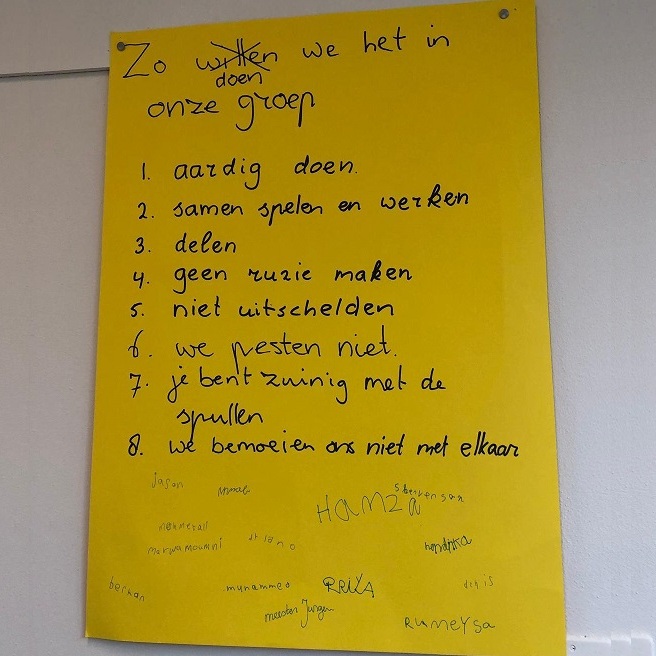 Zo willen we het in
doen
onze groep
1. aardig doen.
2. samen spelen en werken
3. delen
4. geen ruzie maken
5. niet uitschelden
6. we pesten niet.
7. je bent zuinig met de
spullen
8. we bemoeien ons niet met elkaar
Jason
HamZa
marwa moumni
berkan
meester Jurgen
RUMEYSa